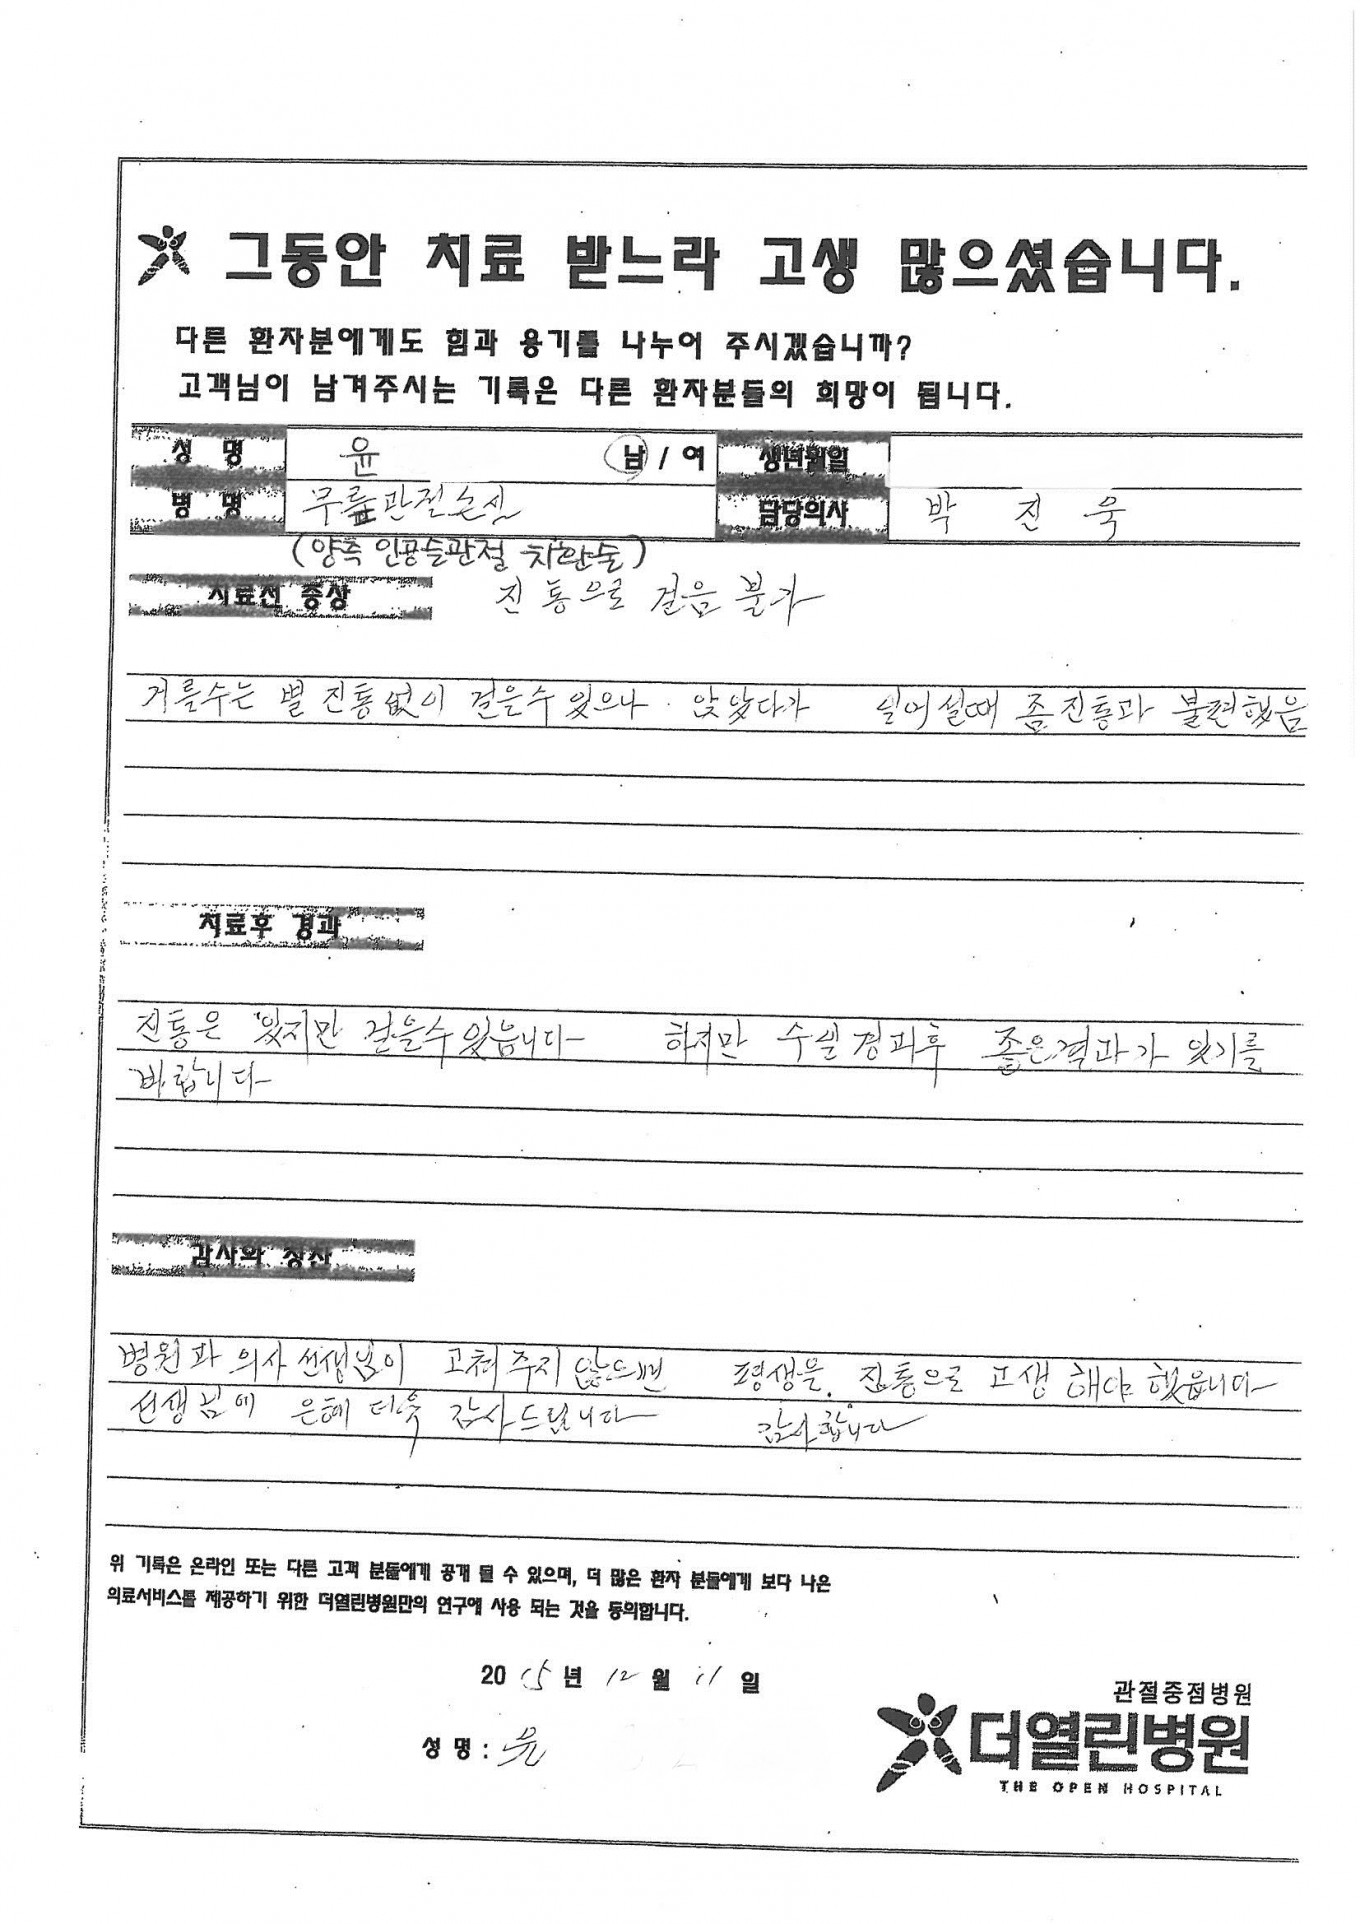 그동안 치료 받느라 고생 많으셨습니다.
다른 환자분에게도 힘과 용기를 나누어 주시겠습니까?
고객님이 남겨주시는 기록은 다른 환자분들의 희망이 됩니다.
성 명 윤 남 / 여 생년월일
병 명 무릎관절손실 담당의사 박 진 욱
(양측 인공슬관절 치환술)
치료전 증상 진통으로 걸음 불가
거를수는 별 진통없이 걸을수 있으나 앉았다가 일어설때 좀 진통과 불편했음
치료후 경과
진통은 있지만 걸을수 있읍니다 하지만 수일경과후 좋은결과가 있기를
바랍니다
감사와 칭찬
병원과 의사선생님이 고쳐주지 않으면 평생을 진통으로 고생 해야 했읍니다
선생님에 은혜 더욱 감사드립니다 감사합니다
위 기록은 온라인 또는 다른 고객 분들에게 공개 될 수 있으며, 더 많은 환자 분들에게 보다 나은
의료서비스를 제공하기 위한 더열린병원만의 연구에 사용 되는 것을 동의합니다.
2015년 12월 11일
성 명 : 윤
관절중점병원
더열린병원
THE OPEN HOSPITAL